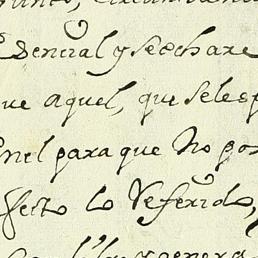 General y se echare
ue aquel, que seles
nel para que No po
fecto lo Referido,